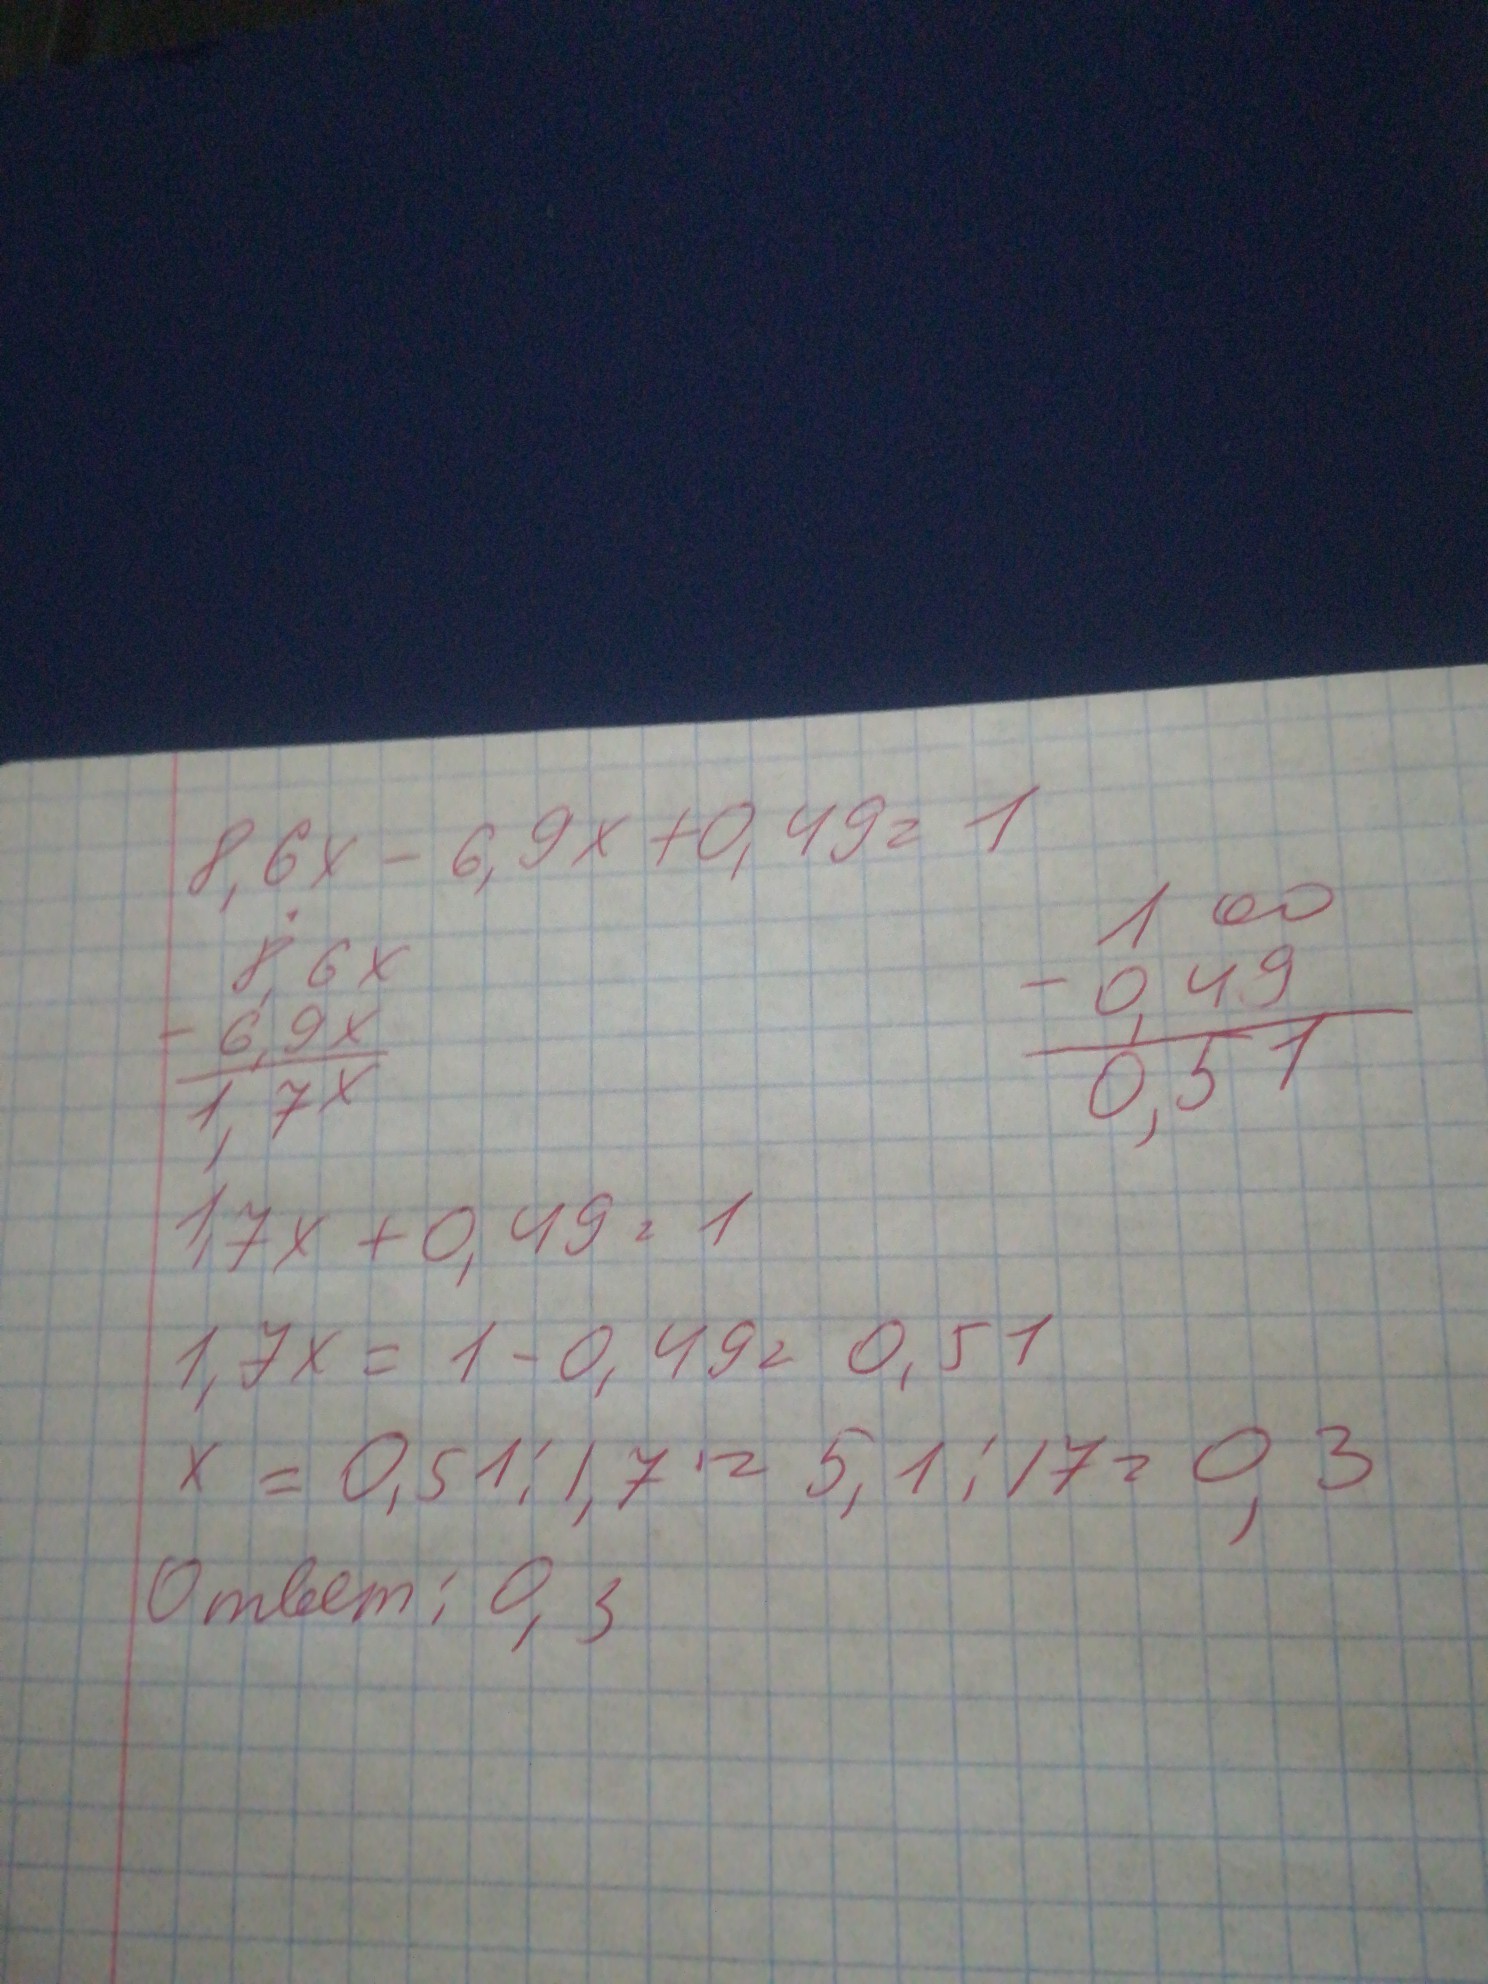 8,6x - 6,9x + 0,49 = 1
8,6x
- 6,9x
1,7x
1 00
- 0,49
0,51
1,7x + 0,49 = 1
1,7x = 1 - 0,49 = 0,51
x = 0,51 : 1,7 = 5,1 : 17 = 0,3
Ответ: 0,3